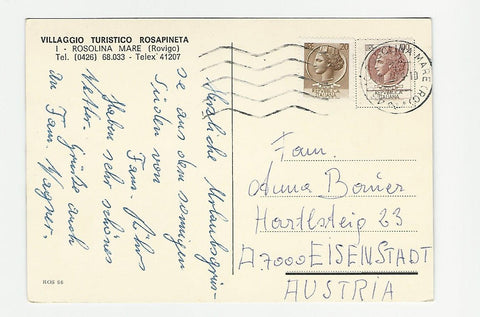 VILLAGGIO TURISTICO ROSAPINETA
I - ROSOLINA MARE (Rovigo)
Tel. (0426) 68.033 - Telex 41207
Herzliche Urlaubsgrüs-
se aus dem sonnigen
Süden von
Fam.
Haben sehr schönes
Wetter.
Grüße auch
an Fam. Wagner.
ROS 56
Fam.
Anna
Hartlsteig 23
A 7000 EISENSTADT
AUSTRIA
20
ITALIANA
ITALIANA
MARE (RO)